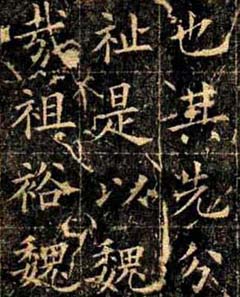 也其先分
祉是以魏
哉祖裕魏